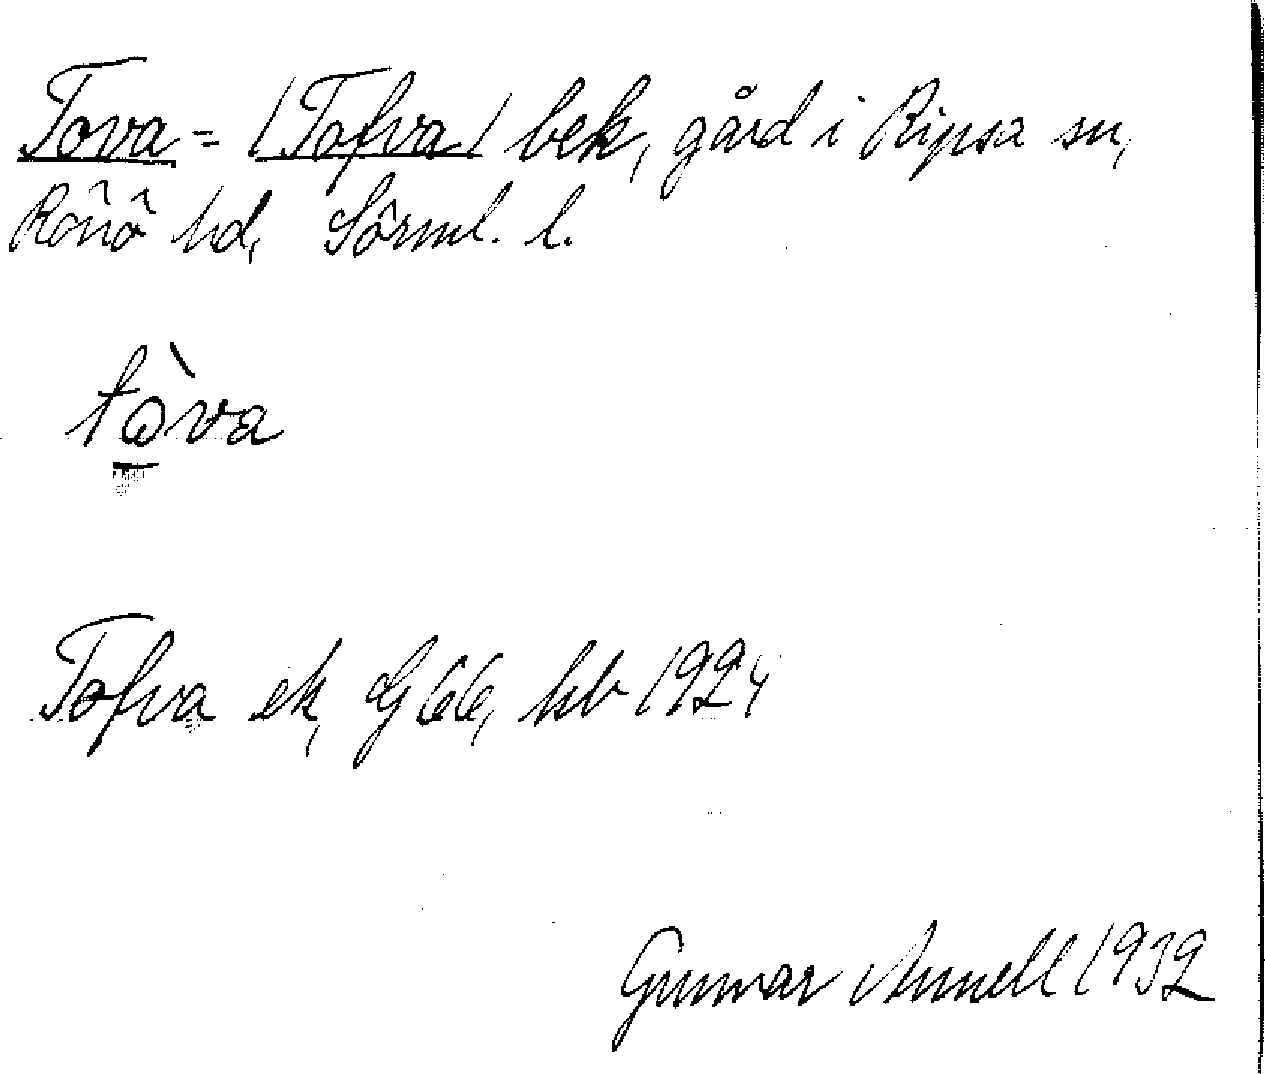 Tova- (Tofva) bek, gård i Ripsa sn,
Rönö hd, Sörml. l.
tòva
Tofva ek, Gj 66, hb 1924
Gunnar Annell 1932